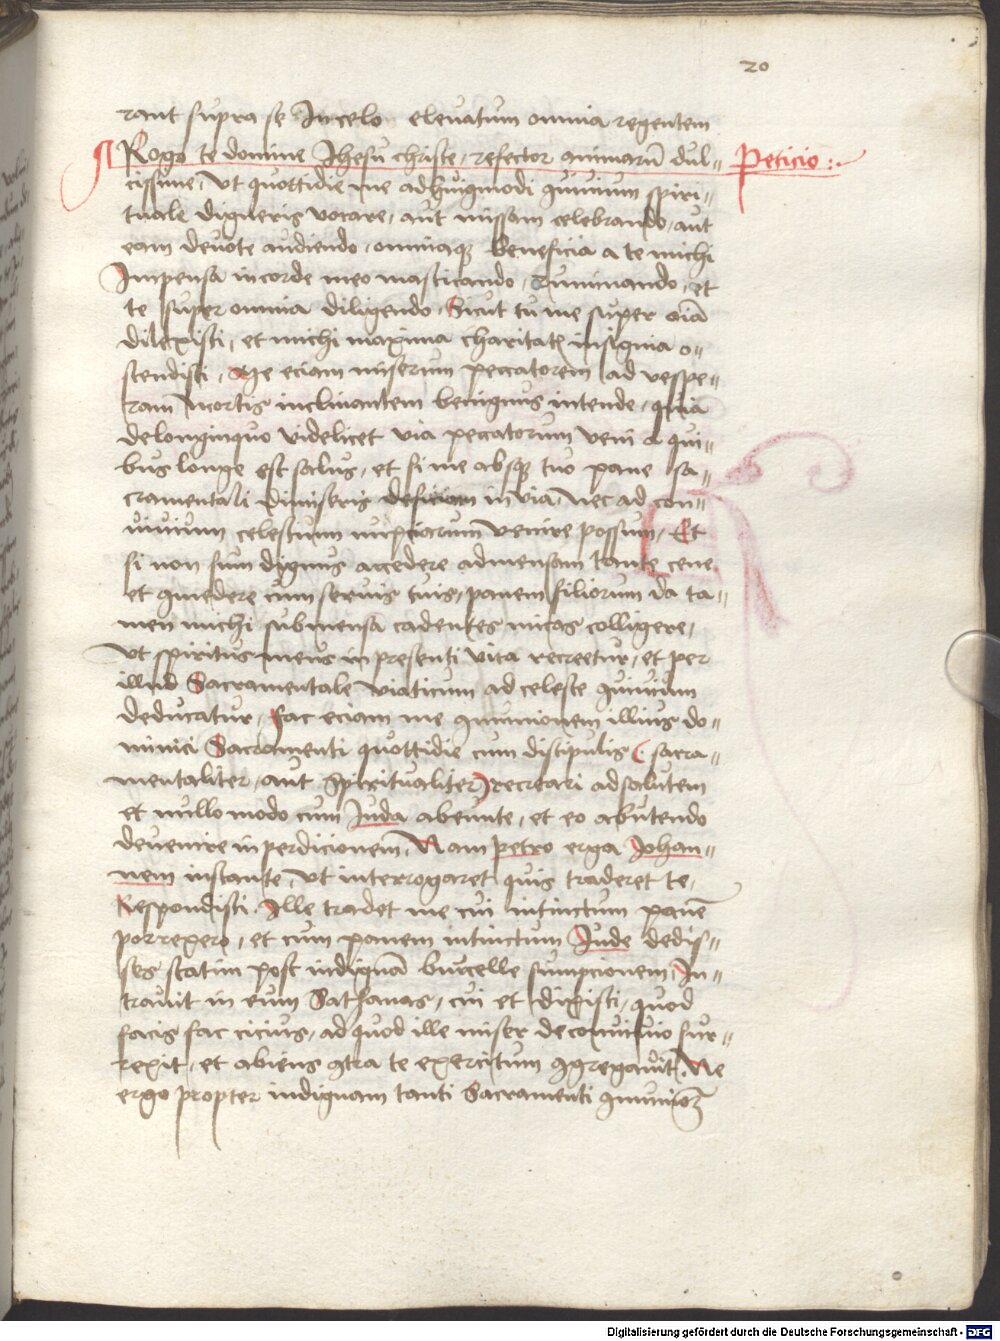 20
rant supra se In celo eleuatum omnia regentem
Rogo te domine Jhesu christe, refector animarũ dul-
Peticio:
cissime, vt quottidie me ad huiusmodi ꝯuiuium spiri-
tuale digneris vocare, aut missam celebrando, aut
eam deuote audiendo, omniaqꝫ beneficia a te michi
Impensa in corde meo masticando, Ruminando, et
te super omnia diligendo, Sicut tu me super oĩa
dilexisti, et michi maxima charitate insignia o-
stendisti, Me eciam miserum peccatorem ad vespe-
ram mortis inclinantem benignus intende, quia
de longinquo videlicet via peccatorum veni a qui-
bus longe est salus, et si me absqꝫ tuo pane sa-
cramentali dimiseris deficiam in via, nec ad con-
uiuium celestium nupciarum venire possum, Et
si non sum dignus accedere ad mensam tante cene
et ꝯmedere cum seruis tuis, panem filiorum da ta-
men michi sub mensa cadentes micas colligere,
vt spiritus meus in presenti vita recreetur, et per
illud Sacramentale viaticum ad celeste ꝯuiuium
deducatur, fac eciam me ꝯmunionem illius do-
minici Sacramenti quottidie cum discipulis (sacra-
mentaliter, aut spiritualiter) recreari ad salutem
et nullo modo cum Iuda abeunte, et eo abutendo
deuenire in perdicionem, Nam petro erga Johan-
nem instante, vt interrogaret quis traderet te,
Respondisti, Ille tradet me cui intinctum panẽ
porrexero, et cum panem intinctum Iude dedis-
ses statim post indignã buccelle sumpcionem, In-
trauit in eum Sathanas, cui et dixisti, quod
facis fac cicius, ad quod ille miser de conuiuio sur-
rexit, et abiens ꝯtra te exercitum ꝯgregauit. Ne
ergo propter indignam tanti Sacramenti ꝯmunionẽ
Digitalisierung gefördert durch die Deutsche Forschungsgemeinschaft - DFG